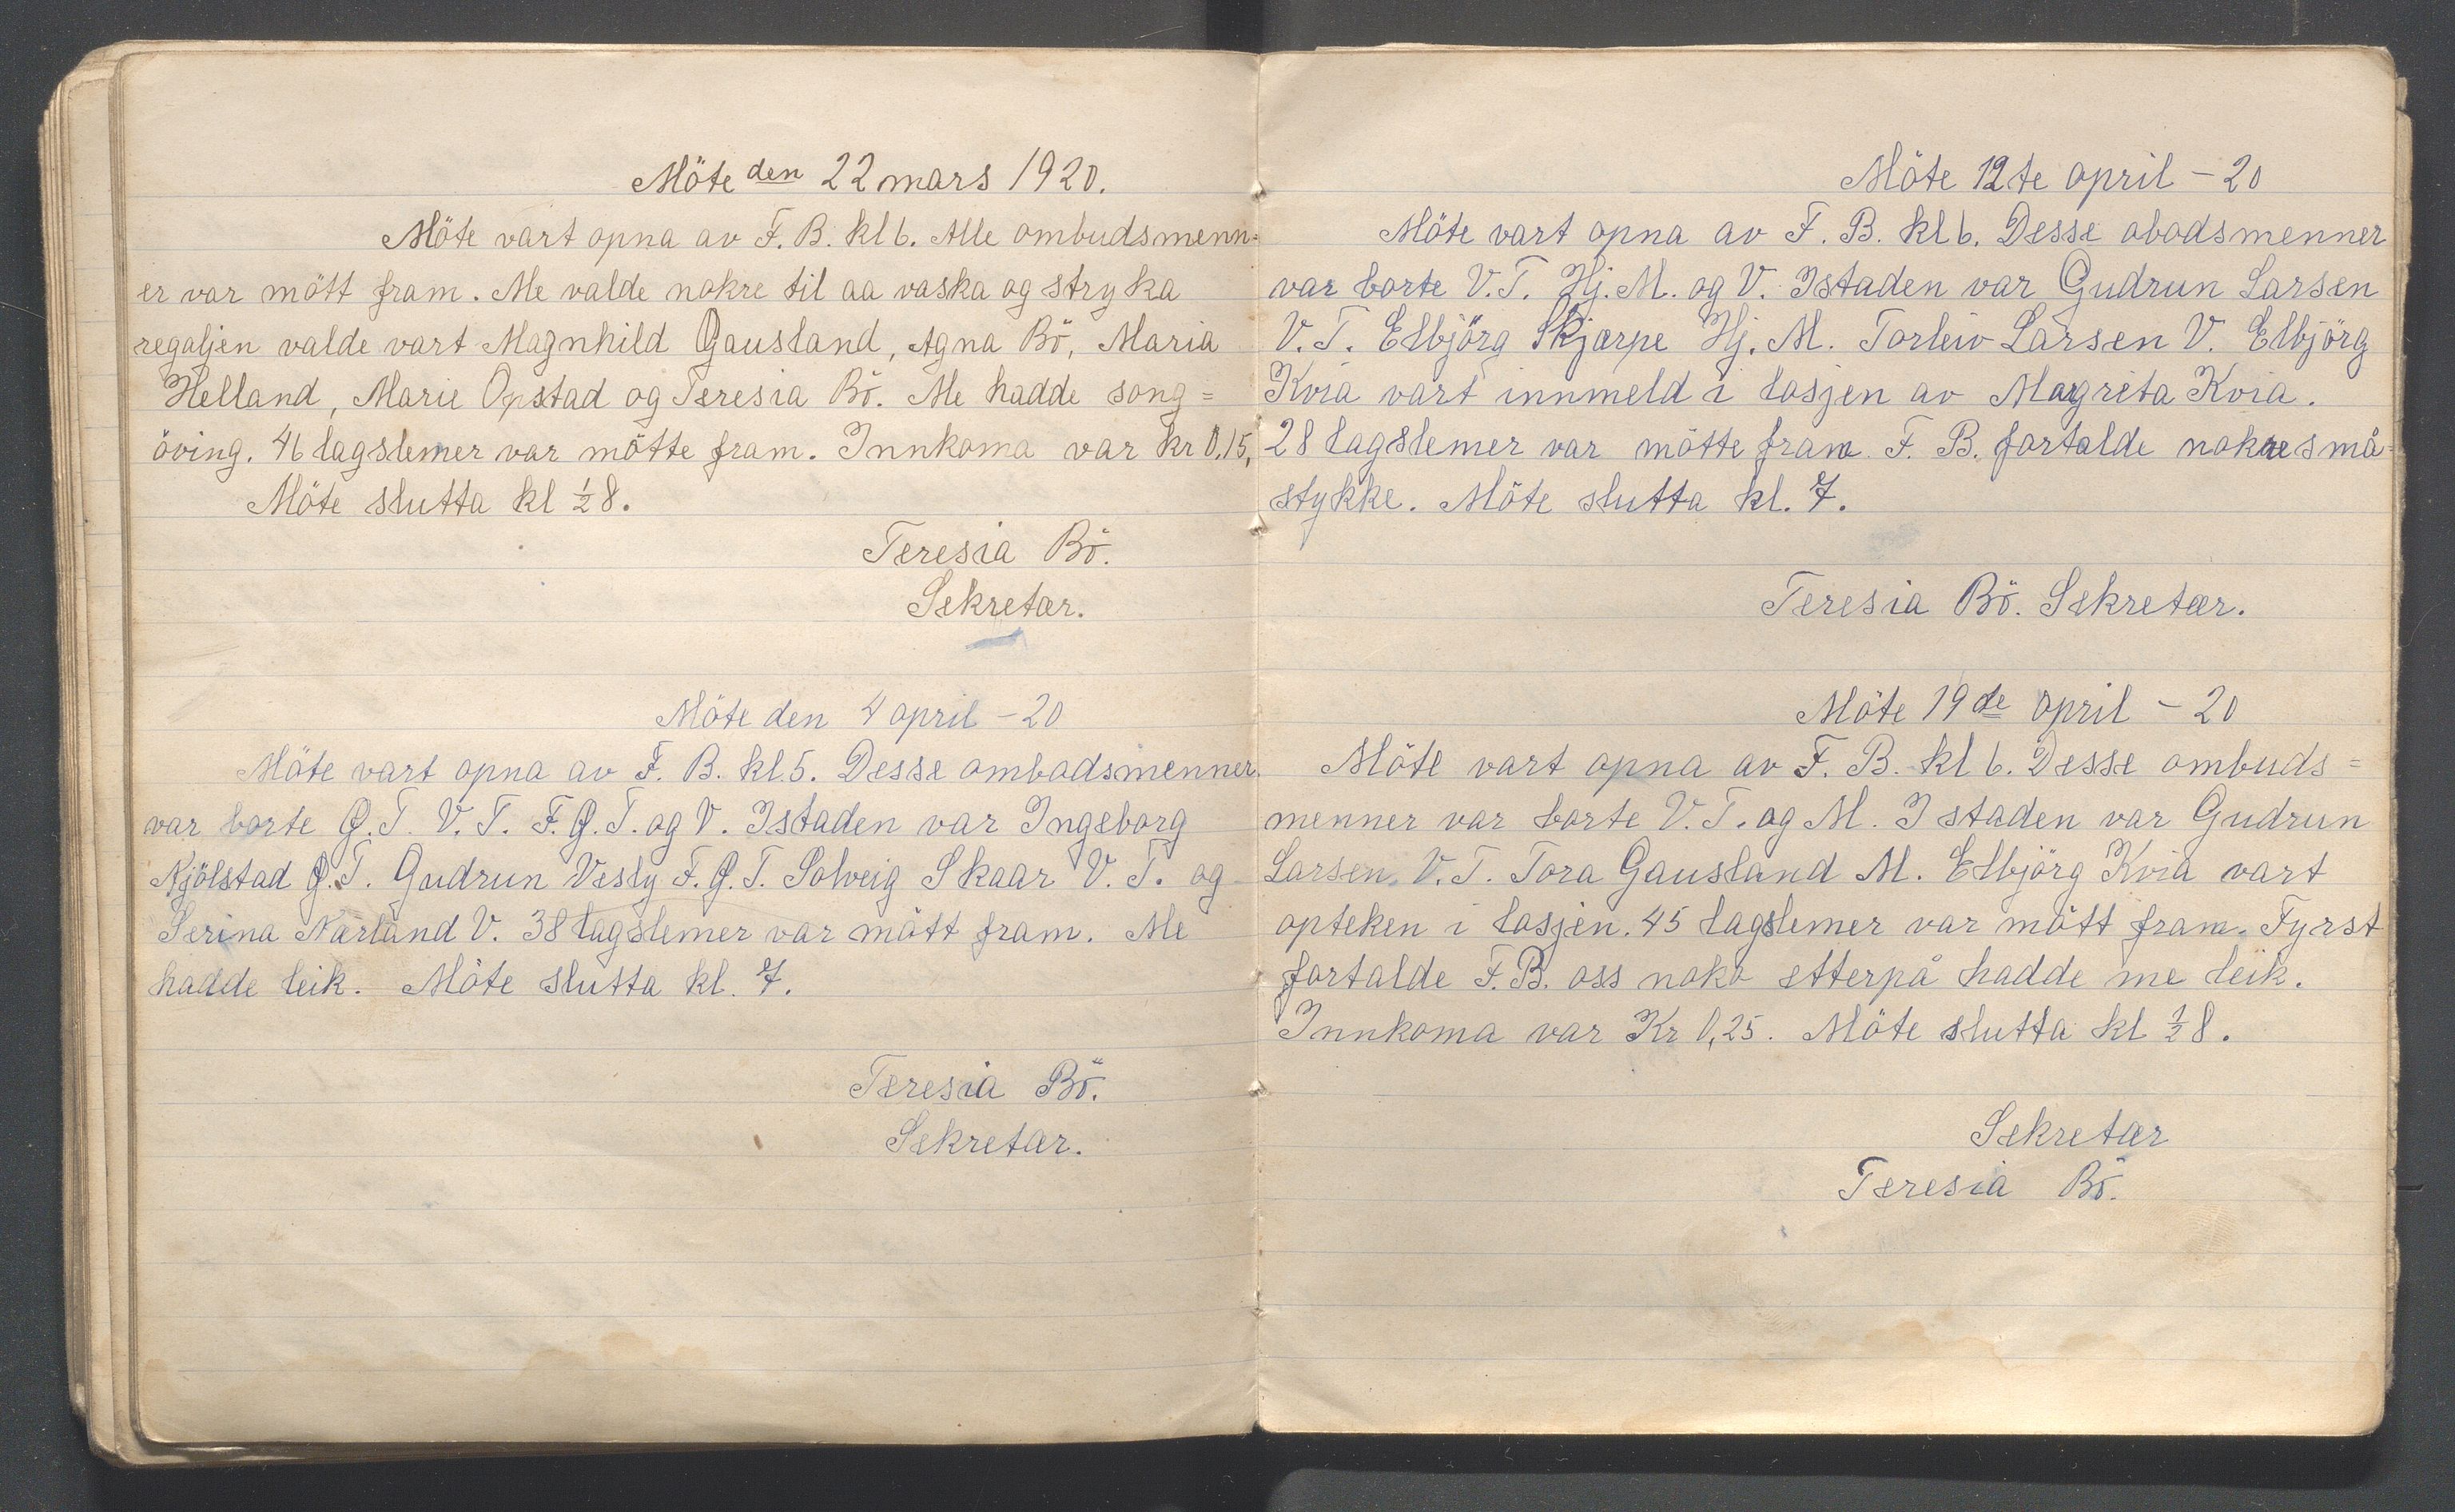 Möte den 22 mars 1920.
Möte vart opna av F. B. kl 6. Alle ombudsmenn=
er var mött fram. Me valde nokre til aa vaska og stryka
regaljen valde vart Magnhild Gausland, Agna Bö, Maria
Helland, Marie Opstad og Teresia Bö. Me hadde song=
öving. 46 lagslemer var mötte fram. Innkoma var kr 0,15,
Möte slutta kl ½ 8.
Teresia Bö.
Sekretær.
Möte den 4 april - 20
Möte vart opna av F. B. kl. 5. Desse ombodsmenner
var borte G. T. V. T. F. G. T. og V. Istaden var Ingeborg
Njölstad G. T. Gudrun Vesly F. G. T. Solveig Skaar V. T. og
Serina Narland V. 38 lagslemer var mött fram. Me
hadde leik. Möte slutta kl. 7.
Teresia Bö.
Sekretær.
Möte 12te april - 20
Möte vart opna av F. B. kl 6. Desse obodsmenner
var borte V. T. Hj. M. og V. Istaden var Gudrun Larsen
V. T. Elbjörg Skjærpe Hj. M. Torleiv Larsen V. Elbjörg
Kvia vart innmeld i losjen av Margreta Kvia.
28 lagslemer var mötte fram. F. B. fortalde nokre små
stykke. Möte slutta kl. 7.
Teresia Bö. Sekretær.
Möte 19de april - 20
Möte vart opna av F. B. kl 6. Desse ombuds=
menner var borte V. T. og M. I staden var Gudrun
Larsen. V. T. Tora Gausland M. Elbjörg Kvia vart
opteken i losjen. 45 lagslemer var mött fram. Fyrst
fortalde F. B. oss noko etterpå hadde me leik.
Innkoma var Kr 0,25. Möte slutta kl ½ 8.
Sekretær
Teresia Bö.